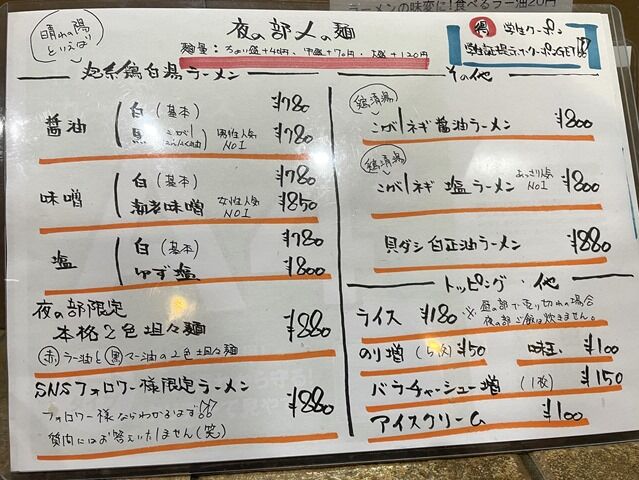 ラーメンの味変に!食べるラー油20円
晴れの陽!
といえば
夜の部〆の麺
麺量:ちょい盛+40円、中盛+70円、大盛+120円
得 学生クーポン
学生証提示でクーポンGET!!
泡系鶏白湯ラーメン
醤油
白(基本) ¥780
黒 男性人気NO1 ¥780
味噌
白(基本) ¥780
海老味噌 女性人気NO1 ¥850
塩
白(基本) ¥780
ゆず塩 ¥800
夜の部限定
本格2色坦々麺 ¥880
赤ラー油と黒マー油の2色坦々麺
SNSフォロワー様限定ラーメン ¥880
フォロワー様ならわかるます!!
質問にはお答えいたしません(笑)
その他
鶏清湯
こがしネギ醤油ラーメン ¥800
鶏清湯
こがしネギ塩ラーメン あっさり人気NO1 ¥800
貝ダシ白正油ラーメン ¥880
トッピング・他
ライス ¥180 ※昼の部で売り切れの場合
夜の部ご飯は炊きません。
のり増(5枚) ¥50 味玉 ¥100
バラチャーシュー増(1枚) ¥150
アイスクリーム ¥100